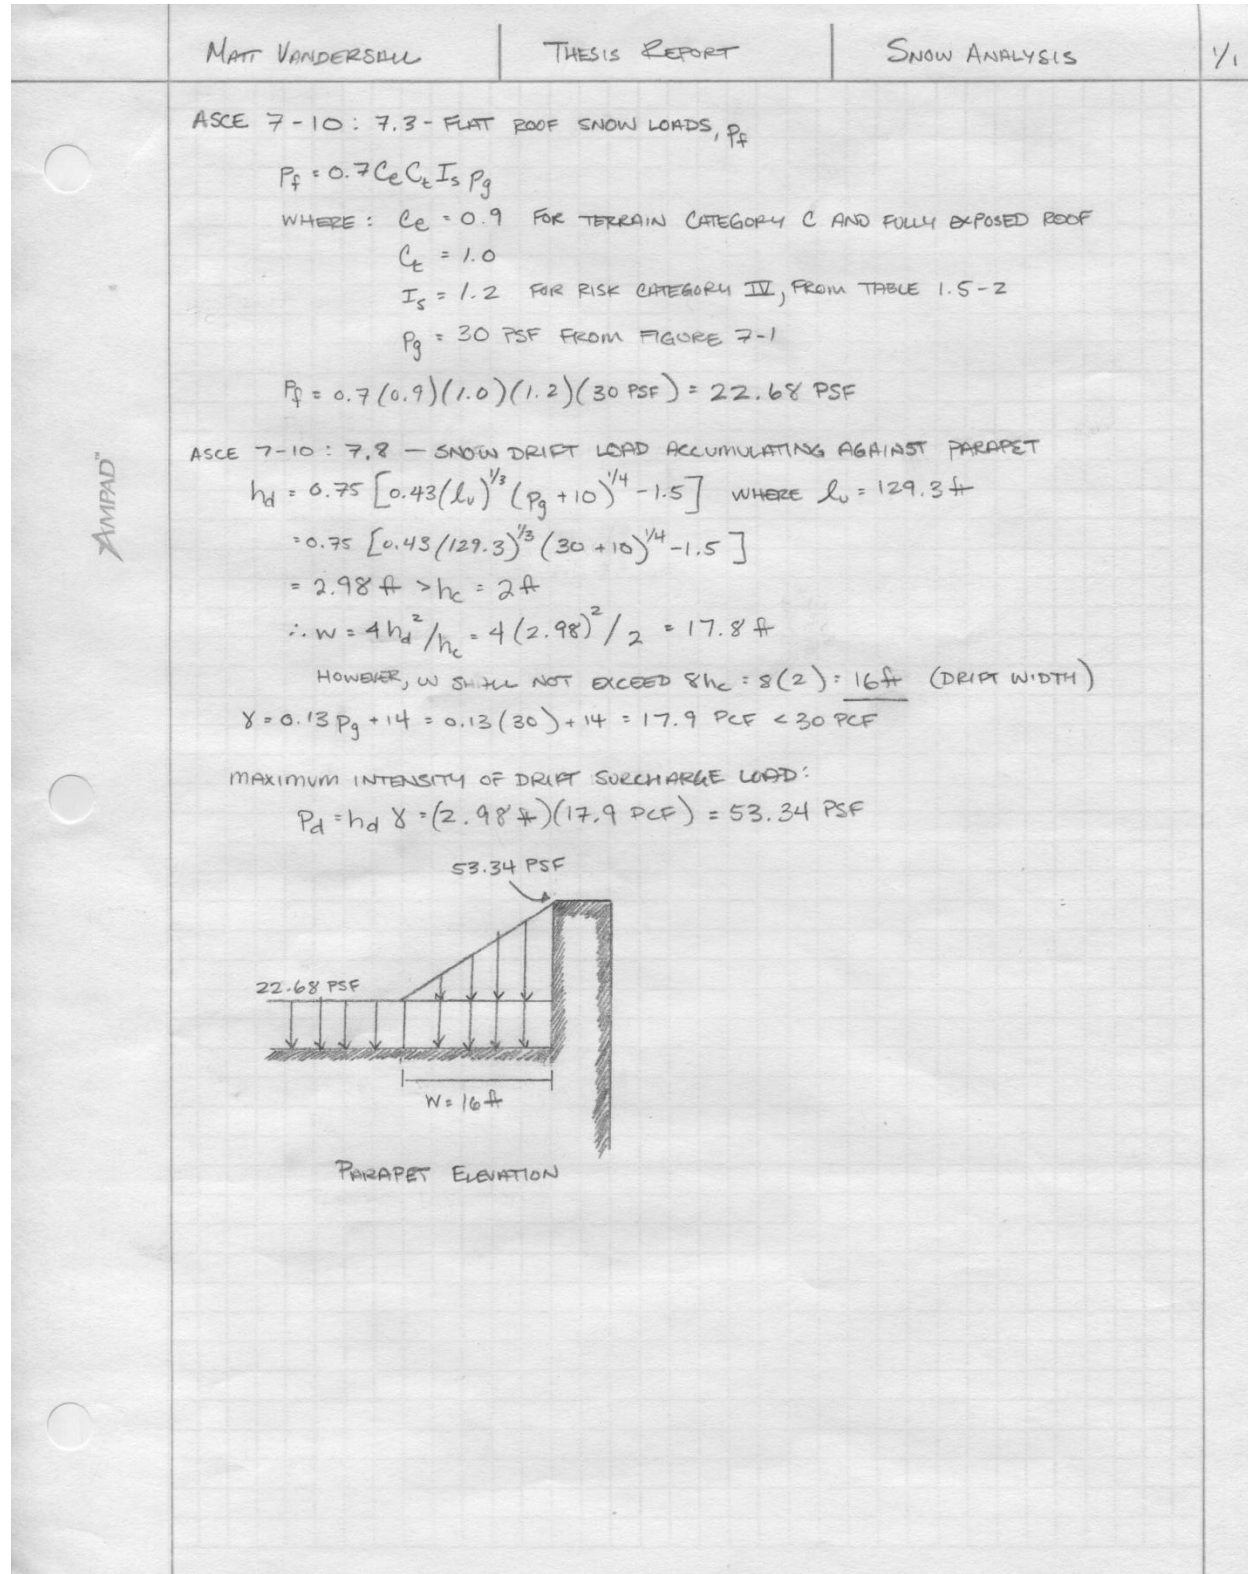 MATT VANDERSALL
THESIS REPORT
SNOW ANALYSIS
1/1
ASCE 7-10: 7.3 - FLAT ROOF SNOW LOADS, Pf
Pf = 0.7 Ce Ct Is Pg
WHERE: Ce = 0.9 FOR TERRAIN CATEGORY C AND FULLY EXPOSED ROOF
Ct = 1.0
Is = 1.2 FOR RISK CATEGORY IV, FROM TABLE 1.5-2
Pg = 30 PSF FROM FIGURE 7-1
Pf = 0.7(0.9)(1.0)(1.2)(30 PSF) = 22.68 PSF
ASCE 7-10: 7.8 — SNOW DRIFT LOAD ACCUMULATING AGAINST PARAPET
hd = 0.75 [0.43(lu)^1/3 (Pg + 10)^1/4 - 1.5] WHERE lu = 129.3 ft
= 0.75 [0.43(129.3)^1/3 (30 + 10)^1/4 - 1.5]
= 2.98 ft > hc = 2 ft
∴ w = 4hd²/hc = 4(2.98)²/2 = 17.8 ft
HOWEVER, W SHALL NOT EXCEED 8hc = 8(2) = 16 ft (DRIFT WIDTH)
γ = 0.13 Pg + 14 = 0.13(30) + 14 = 17.9 PCF < 30 PCF
MAXIMUM INTENSITY OF DRIFT SURCHARGE LOAD:
Pd = hd γ = (2.98 ft)(17.9 PCF) = 53.34 PSF
53.34 PSF
22.68 PSF
W = 16 ft
PARAPET ELEVATION
AMPAD™